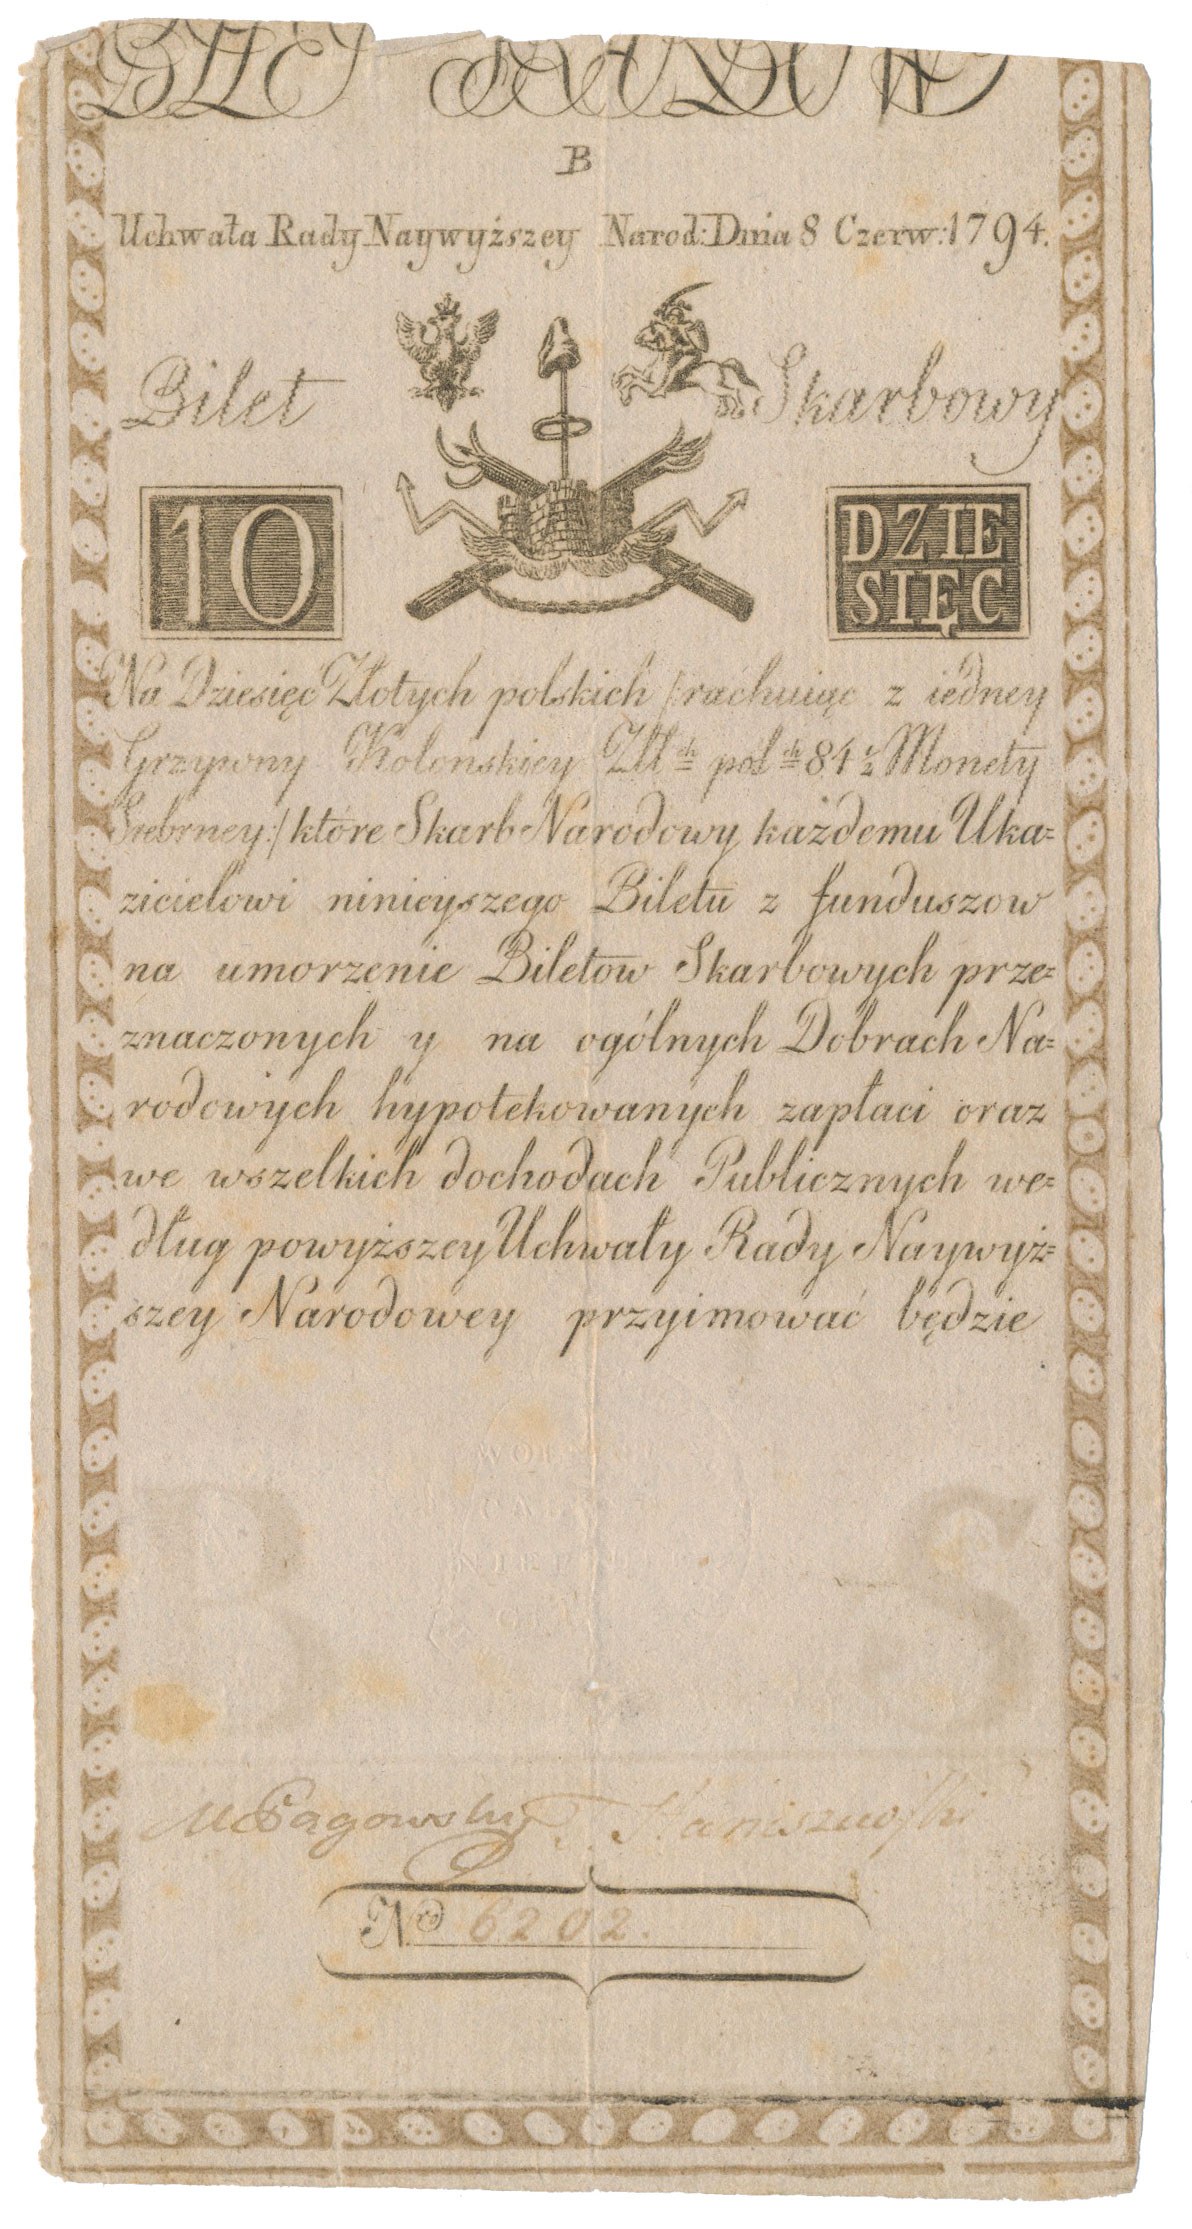 B
Uchwała Rady Naywyższey Narod: Dnia 8 Czerw: 1794.
Bilet Skarbowy
10 DZIE
SIĘC
Na Dziesięć Złotych polskich /:rachuiąc z iedney
Grzywny Kolonskiey Zll ch pol ch 84 1/2 Monety
Srebrney:/ które Skarb Narodowy każdemu Uka=
zicielowi ninieyszego Biletu z funduszow
na umorzenie Biletow Skarbowych prze=
znaczonych y na ogólnych Dobrach Na=
rodowych hypotekowanych zapłaci oraz
we wszelkich dochodach Publicznych we=
dług powyższey Uchwały Rady Naywyż=
szey Narodowey przyimować będzie
S
M Pągowski
Nro 6202.